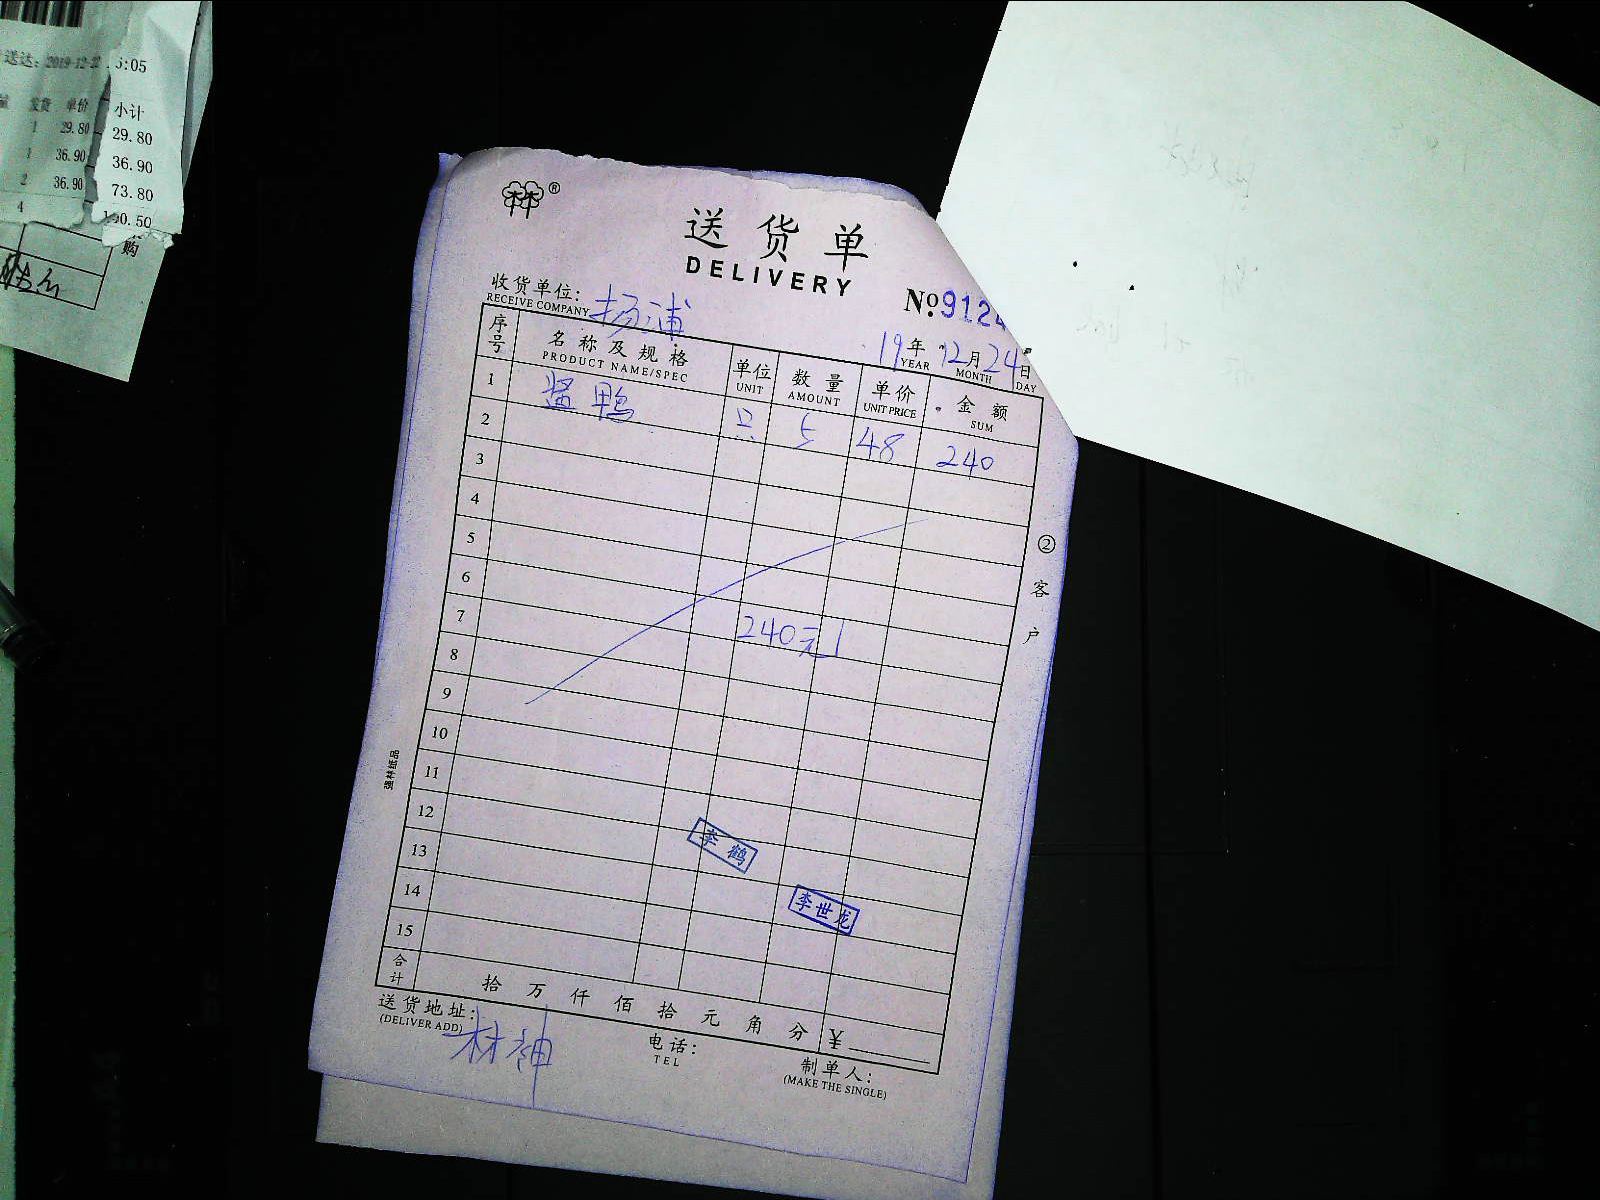 送达: 2019-12-2 5:05
发货 单价 小计
1 29.80 29.80
1 36.90 36.90
2 36.90 73.80
4
购
林 ®
送货单
DELIVERY
收货单位: 杨浦
RECEIVE COMPANY
No. 9124
19年 12月 24日
YEAR MONTH DAY
序号 名称及规格 单位 数量 单价 金额
PRODUCT NAME/SPEC UNIT AMOUNT UNIT PRICE SUM
1 酱鸭 只 5 48 240
2
3
4
5
6
7 240元
8
9
10
11
12 李鹤
13
14 李世龙
15
合计 拾 万 仟 佰 拾 元 角 分 ¥
送货地址: 林神
(DELIVER ADD)
电话:
TEL
制单人:
(MAKE THE SINGLE)
② 客户
强林纸品